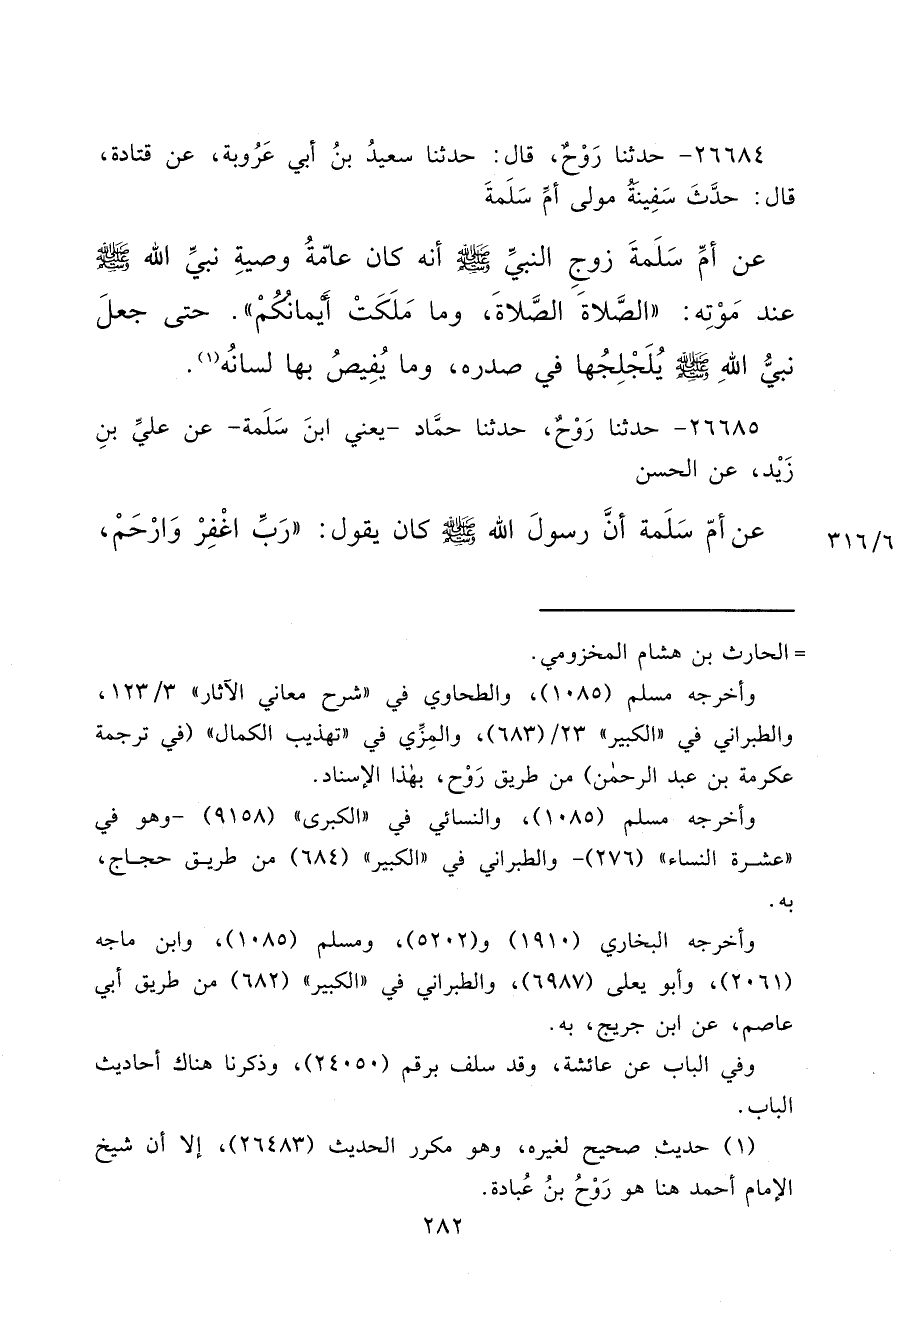 ٢٦٦٨٤- حدثنا رَوْحٌ، قال: حدثنا سعيدُ بنُ أبي عَرُوبة، عن قتادة،
قال: حدَّثَ سَفِينَةُ مولى أمِّ سَلَمةَ
عن أمِّ سَلَمةَ زوجِ النبيِّ ﷺ أنه كان عامّةُ وصيةِ نبيِّ الله ﷺ
عند مَوْتِه: «الصَّلاةَ الصَّلاةَ، وما مَلَكَتْ أَيمانُكُمْ». حتى جعلَ
نبيُّ اللهِ ﷺ يُلَجْلِجُها في صدره، وما يُفِيصُ بها لسانُه(١).
٢٦٦٨٥- حدثنا رَوْحٌ، حدثنا حمَّاد -يعني ابنَ سَلَمة- عن عليِّ بنِ
زَيْد، عن الحسن
عن أمّ سَلَمة أنَّ رسولَ الله ﷺ كان يقول: «رَبِّ اغْفِرْ وَارْحَمْ،
٣١٦/٦
= الحارث بن هشام المخزومي.
وأخرجه مسلم (١٠٨٥)، والطحاوي في «شرح معاني الآثار» ١٢٣/٣،
والطبراني في «الكبير» ٢٣/(٦٨٣)، والمِزِّي في «تهذيب الكمال» (في ترجمة
عكرمة بن عبد الرحمٰن) من طريق رَوْح، بهٰذا الإسناد.
وأخرجه مسلم (١٠٨٥)، والنسائي في «الكبرى» (٩١٥٨) -وهو في
«عشرة النساء» (٢٧٦)- والطبراني في «الكبير» (٦٨٤) من طريق حجاج،
به.
وأخرجه البخاري (١٩١٠) و(٥٢٠٢)، ومسلم (١٠٨٥)، وابن ماجه
(٢٠٦١)، وأبو يعلى (٦٩٨٧)، والطبراني في «الكبير» (٦٨٢) من طريق أبي
عاصم، عن ابن جريج، به.
وفي الباب عن عائشة، وقد سلف برقم (٢٤٠٥٠)، وذكرنا هناك أحاديث
الباب.
(١) حديث صحيح لغيره، وهو مكرر الحديث (٢٦٤٨٣)، إلا أن شيخ
الإمام أحمد هنا هو رَوْحُ بنُ عُبادة.
٢٨٢